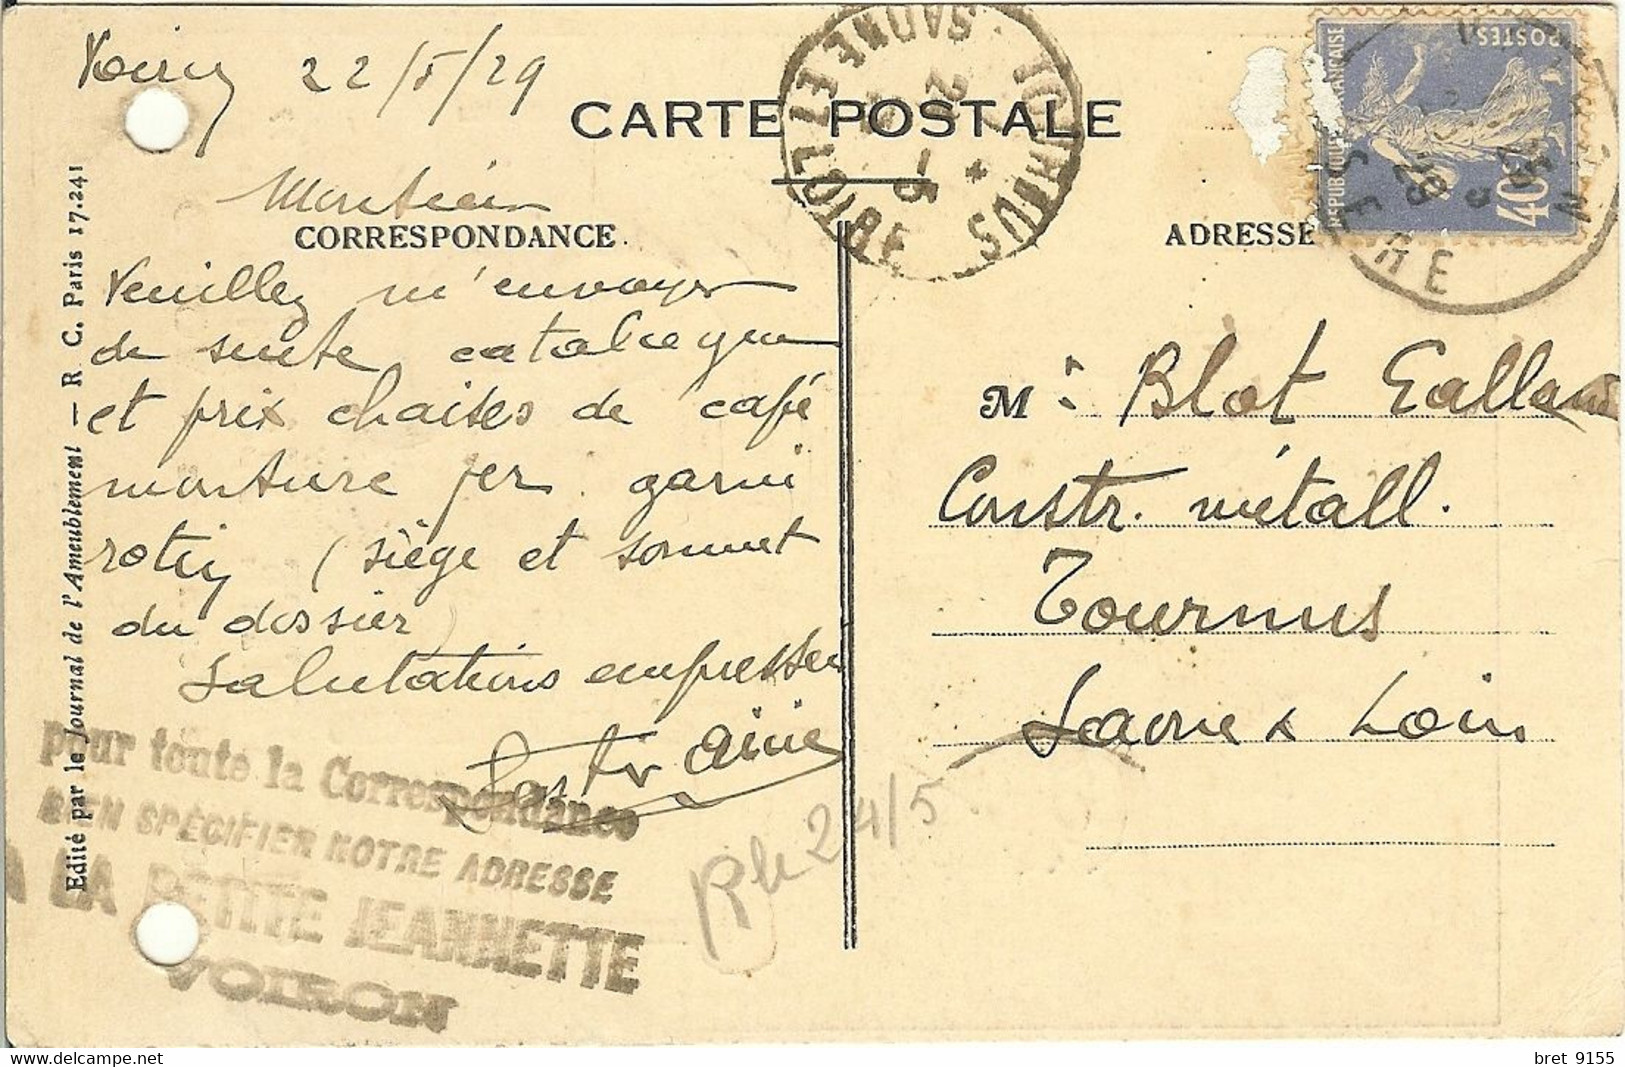 Voiron 22/5/29
CARTE POSTALE
TOURNUS
SAONE ET LOIRE
24 - 5
REPUBLIQUE FRANÇAISE
POSTES
40c
VOIRON
ISERE
Monsieur
CORRESPONDANCE
ADRESSE
Veuillez m'envoyer
de suite catalogue
et prix chaises de café
monture fer garni
rotin (siège et sommet
du dossier)
Salutations empressées
Aimé
Mr Blot Galland
Constr. métall.
Tournus
Saone & Loire
Rh 24/5
pour toute la Correspondance
BIEN SPÉCIFIER NOTRE ADRESSE
A LA PETITE JEANNETTE
VOIRON
Edité par le Journal de l'Ameublement — R. C. Paris 17.241
bret 9155